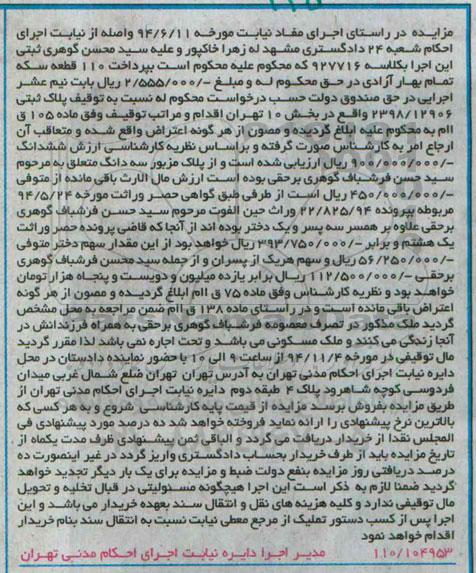 مزایده در راستای اجرای مفاد نیابت مورخه ۹۴/۶/۱۱ واصله از نیابت اجرای
احکام شعبه ۲۴ دادگستری مشهد له زهرا خاکپور و علیه سید محسن گوهری ثبتی
این اجرا بکلاسه ۹۲۷۷۱۶ که محکوم علیه محکوم است بپرداخت ۱۱۰ قطعه سکه
تمام بهار آزادی در حق محکوم له و مبلغ -/۲/۵۵۵/۰۰۰ ریال بابت نیم عشر
اجرایی در حق صندوق دولت حسب درخواست محکوم له نسبت به توقیف پلاک ثبتی
۲۳۹۸/۱۲۹۰۶ واقع در بخش ۱۰ تهران اقدام و مراتب توقیف وفق ماده ۱۰۵ ق
اام به محکوم علیه ابلاغ گردیده و مصون از هر گونه اعتراض واقع شده و متعاقب آن
ارجاع امر به کارشناس صورت گرفته و براساس نظریه کارشناسی ارزش ششدانگ
-/۹۰۰/۰۰۰/۰۰۰ ریال ارزیابی شده است و از پلاک مزبور سه دانگ متعلق به مرحوم
سید حسن فرشباف گوهری برحقی بوده است ارزش مال الارث باقی مانده از متوفی
-/۴۵۰/۰۰۰/۰۰۰ ریال است از طرفی طبق گواهی حصر وراثت مورخه ۹۴/۵/۲۴
مربوطه بپرونده ۲۲/۸۲۵/۹۴ وراث حین الفوت مرحوم سید حسن فرشباف گوهری
برحقی علاوه بر همسر سه پسر و یک دختر بوده اند از آنجا که قاضی پرونده حصر وراثت
یک هشتم و برابر -/۳۹۳/۷۵۰/۰۰۰ ریال خواهد بود از این مقدار سهم دختر متوفی
-/۵۶/۲۵۰/۰۰۰ ریال و سهم هریک از پسران و از جمله سید محسن فرشباف گوهری
برحقی -/۱۱۲/۵۰۰/۰۰۰ ریال برابر یازده میلیون و دویست و پنجاه هزار تومان
خواهند بود و نظریه کارشناس وفق ماده ۷۵ ق اام ابلاغ گردیده و مصون از هر گونه
اعتراض باقی مانده است و در راستای ماده ۱۳۸ ق اام ضمن مراجعه به محل مشخص
گردید ملک مذکور در تصرف معصومه فرشباف گوهری برحقی به همراه فرزندانش در
آنجا زندگی می کنند و ملک مسکونی می باشد و تحت اجاره نمی باشد لذا مقرر گردید
مال توقیفی در مورخه ۹۴/۱۱/۴ از ساعت ۹ الی ۱۰ با حضور نماینده دادستان در محل
دایره نیابت اجرای احکام مدنی تهران به آدرس تهران تهران ضلع شمال غربی میدان
فردوسی کوچه شاهرود پلاک ۴ طبقه دوم دایره نیابت اجرای احکام مدنی تهران از
طریق مزایده بفروش برسد مزایده از قیمت پایه کارشناسی شروع و به هر کسی که
بالاترین نرخ پیشنهادی را ارائه نماید فروخته خواهد شد ده درصد مورد پیشنهادی فی
المجلس نقدا از خریدار دریافت می گردد و الباقی ثمن پیشنهادی ظرف مدت یکماه از
تاریخ مزایده باید از طرف خریدار بحساب دادگستری واریز گردد در غیر اینصورت ده
درصد دریافتی روز مزایده بنفع دولت ضبط و مزایده برای یک بار دیگر تجدید خواهد
گردید ضمنا لازم به ذکر است این اجرا هیچگونه مسئولیتی در قبال تخلیه و تحویل
مال توقیفی ندارد و کلیه هزینه های نقل و انتقال سند بعهده خریدار می باشد و این
اجرا پس از کسب دستور تملیک از مرجع معطی نیابت نسبت به انتقال سند بنام خریدار
اقدام خواهد نمود
۱۱۰/۱۰۴۹۵۳ مدیر اجرا دایره نیابت اجرای احکام مدنی تهران